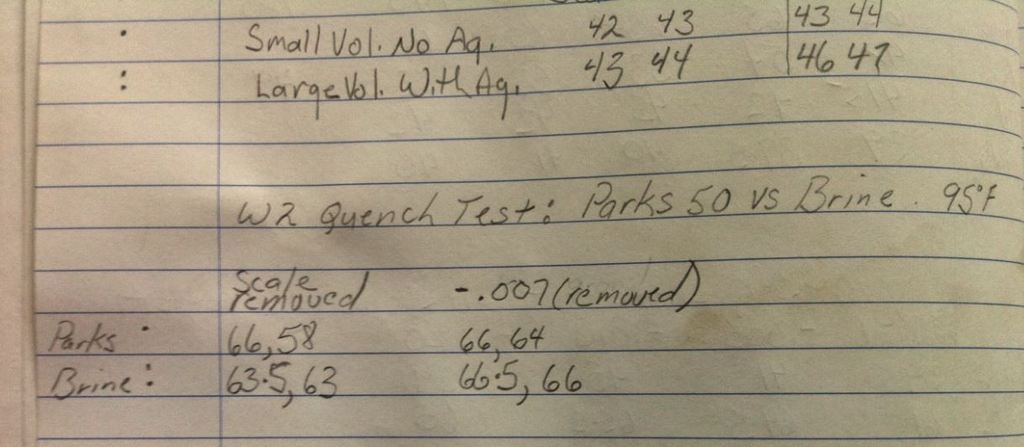 Small Vol. No Ag. 42 43 43 44
Large Vol. With Ag. 43 44 46 47
W2 Quench Test: Parks 50 vs Brine. 95°F
Scale removed -.007 (removed)
Parks: 66,58 66,64
Brine: 63.5,63 66.5,66